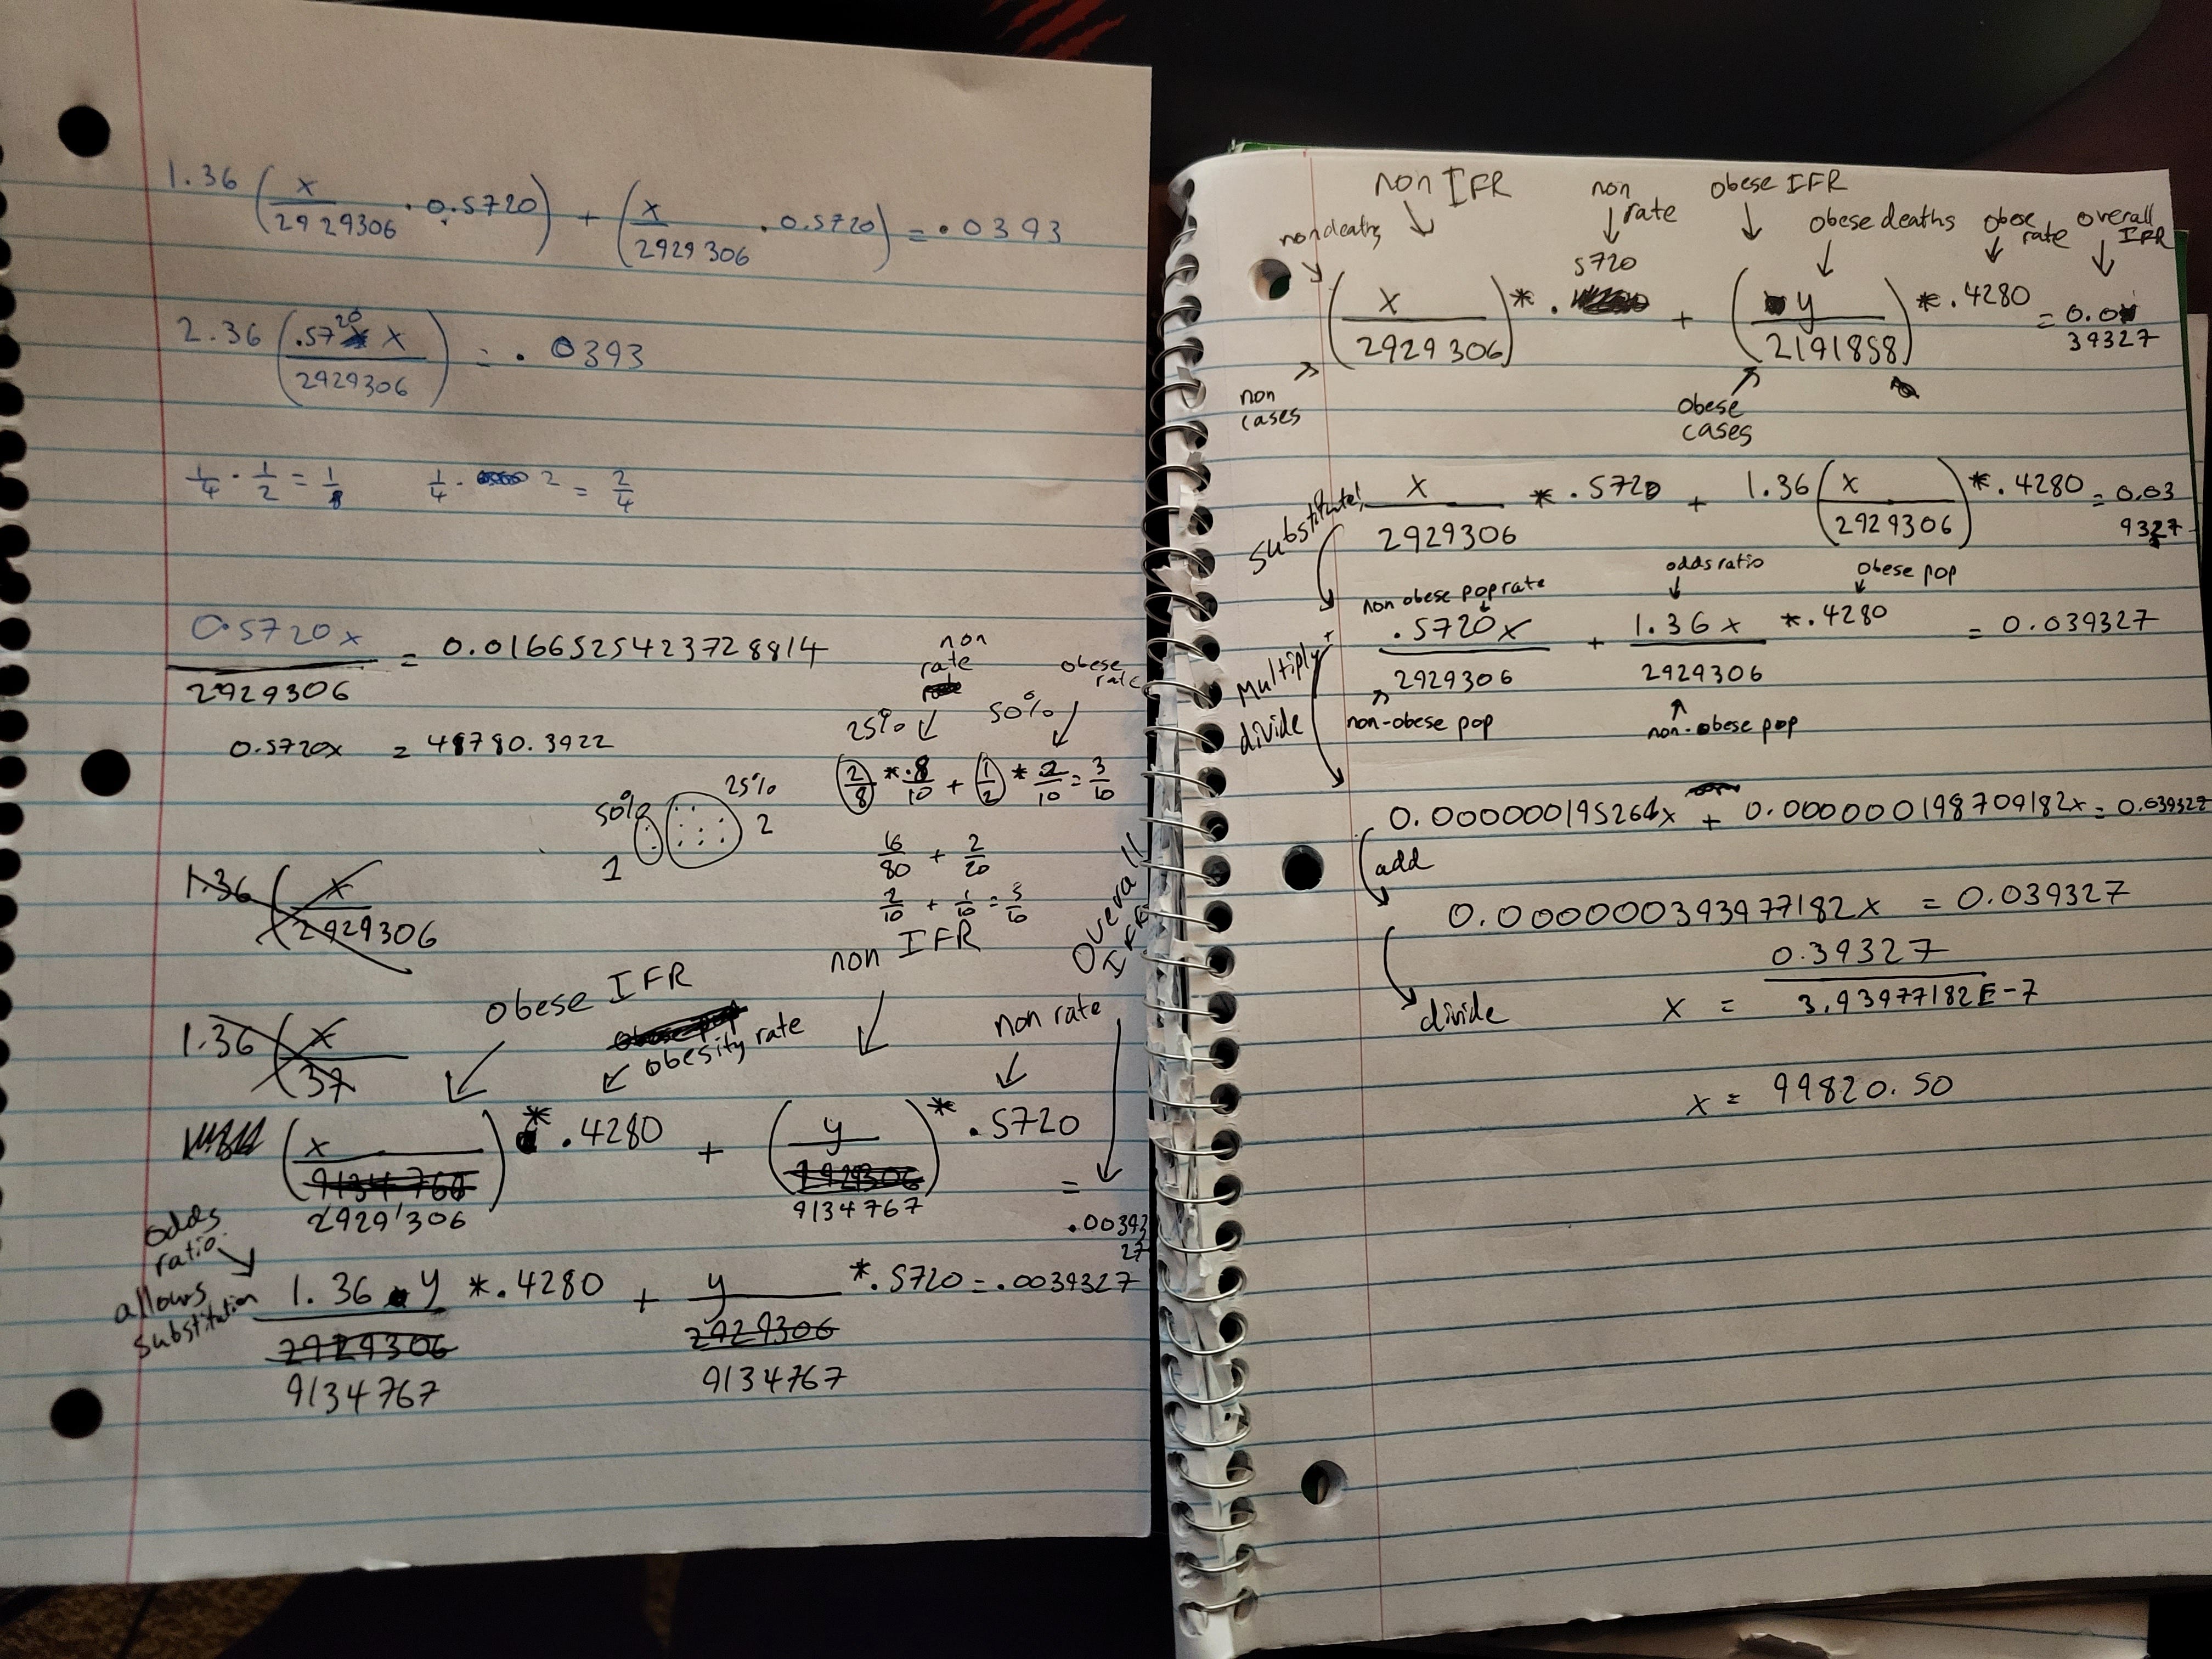 1.36 (x/2929306 · 0.5720) + (x/2929306 · 0.5720) = .0393
2.36 (.5720 x/2929306) = . 0393
1/4 · 1/2 = 1/8    1/4 · 2 = 2/4
0.5720x/2929306 = 0.0166525423728814
0.5720x = 48780.3922
non rate
obese rate
25%
50%
2/8 * .8/10 + 1/2 * 2/10 = 3/10
50%
25%
1
2
16/80 + 2/20
2/10 + 1/10 = 3/10
1.36 (x/2929306
1.36 (x/37
obese IFR
obesity rate
non IFR
non rate
Overall IFR
(x/2929306) * .4280 + (y/9134767) * .5720 = .0039327
odds ratio
allows substitution
1.36 y/9134767 * .4280 + y/9134767 * .5720 = .0039327
non IFR
non rate
obese IFR
non deaths
obese deaths
obese rate
overall IFR
(x/2929306) * .5720 + (y/2191858) * .4280 = 0.039327
non cases
obese cases
substitute!
x/2929306 * .5720 + 1.36 (x/2929306) * .4280 = 0.039327
non obese pop rate
odds ratio
obese pop
.5720x/2929306 + 1.36x/2929306 * .4280 = 0.039327
Multiply + divide
non-obese pop
non-obese pop
0.000000195268x + 0.000000198709182x = 0.039327
add
0.000000393977182x = 0.039327
divide
x = 0.39327/3.93977182E-7
x = 99820.50